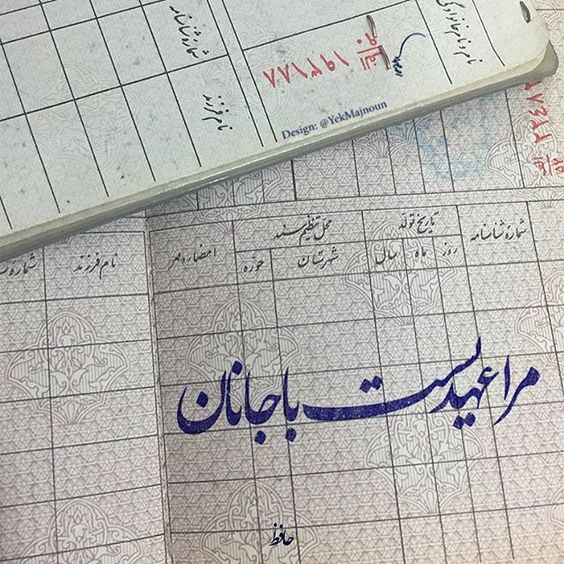 نام و نام خانوادگی
شمارهٔ شناسنامه
نام فرزند
۱۹۳۱۸۸
Design: @YekMajnoun
شمارهٔ شناسنامه
تاریخ تولد
روز ماه سال
محل تنظیم سند
شهرستان حوزه
امضاء و مهر
نام فرزند
مرا عهدیست با جانان
حافظ